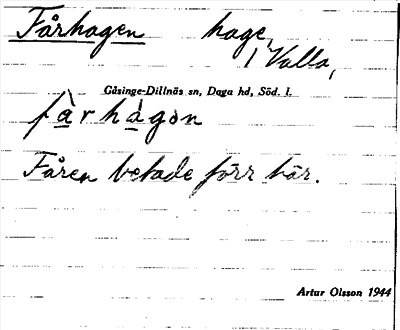 Fårhagen hage,
i Valla,
Gåsinge-Dillnäs sn, Daga hd, Söd. l.
fà̲rhà̲gən
Fåren betade förr här.
Artur Olsson 1944